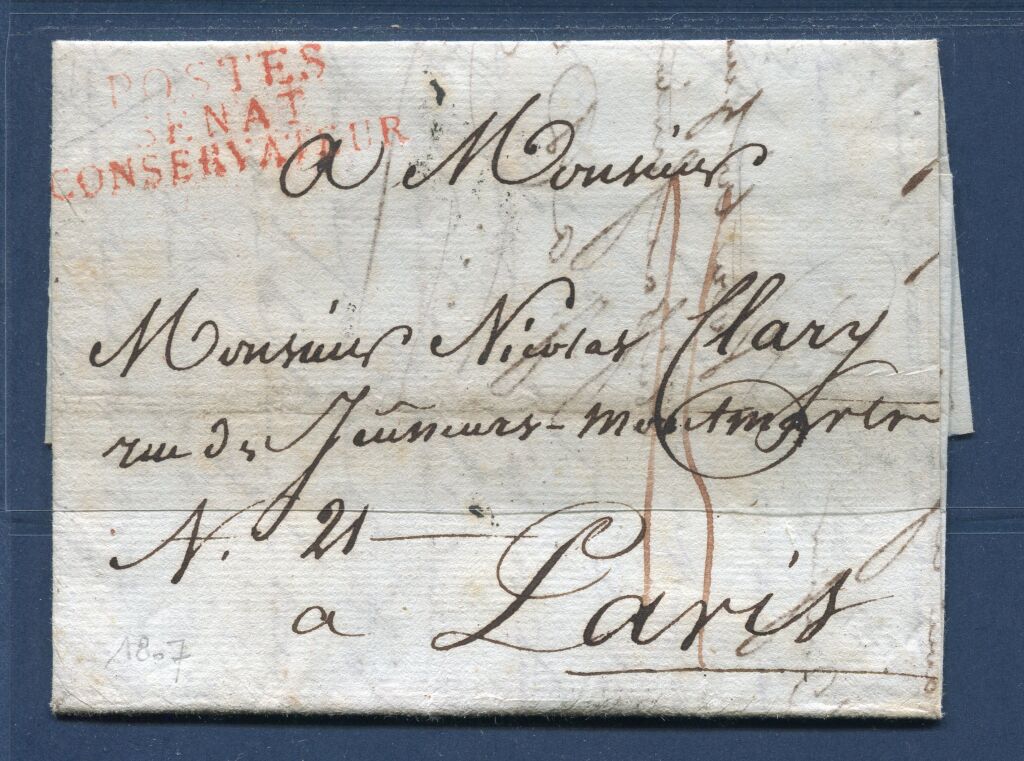 POSTES
SENAT
CONSERVATEUR
a Monsieur
Monsieur Nicolas Clary
rue des Jeûneurs - Montmartre
N. 21 —
a Paris
1807